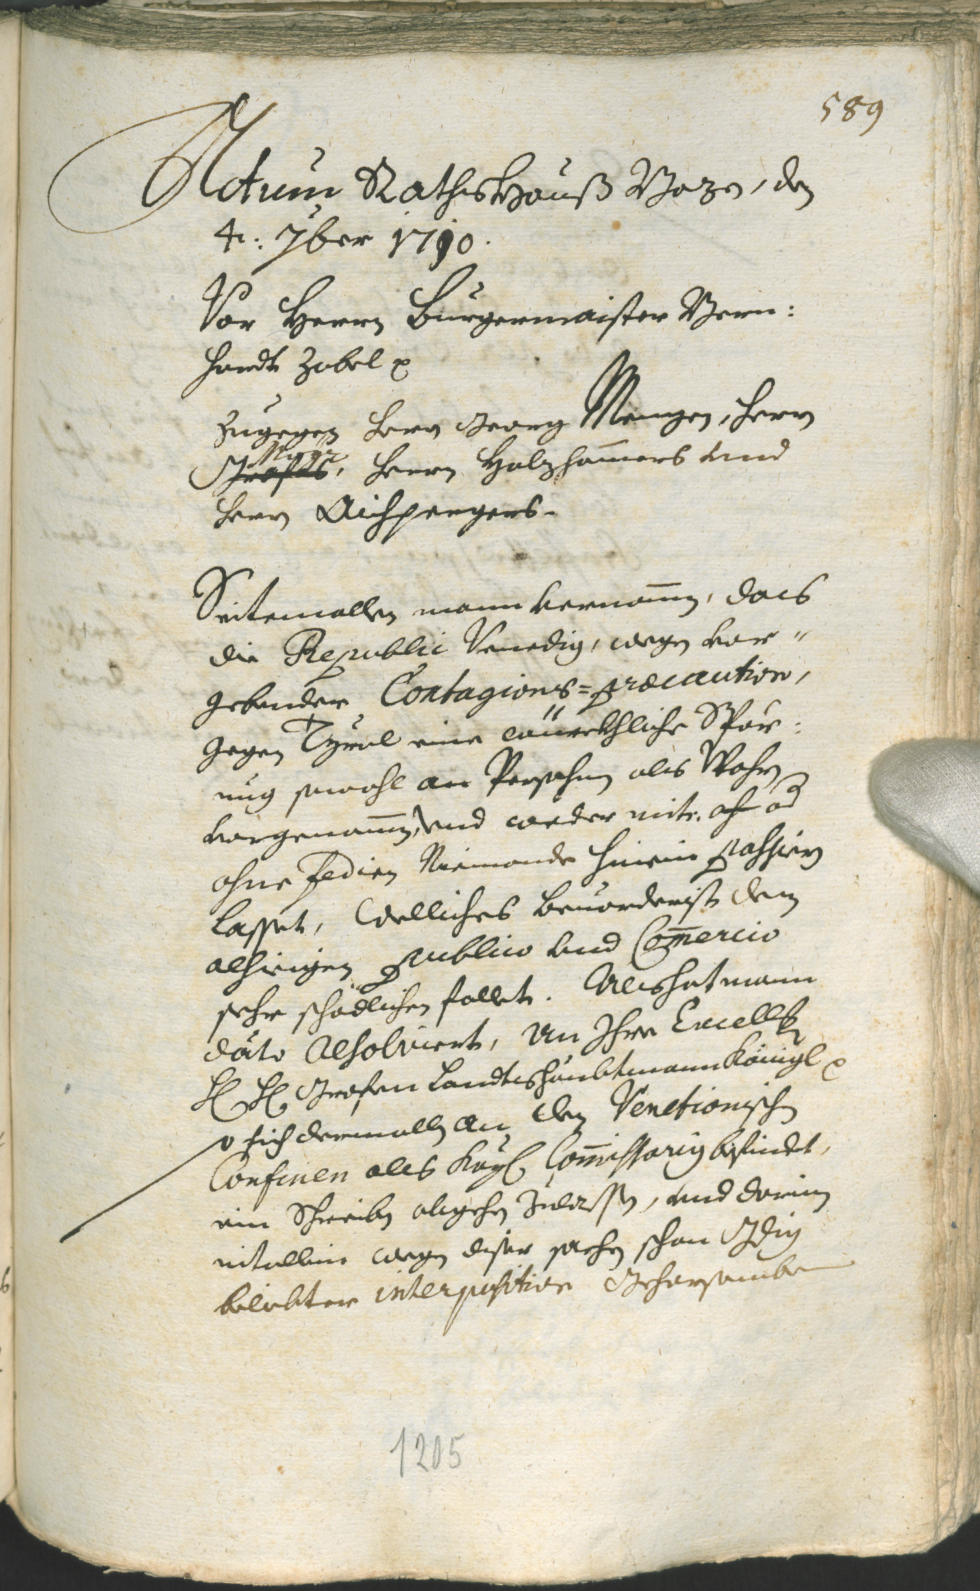 589
Actum Rathshauß Bozen, den
4.: 7ber 1710.
Vor Herrn Burgermaister Bern:
hardt Zobel
Zugegen Herrn Georg Menzen, Herrn
Herrn Holzhamers und
Herrn Aichpergers.
Seitemallen mann vernomen, dass
die Republic Venedig, wegen vor"
gebender Contagions=præcaution,
gegen Tyrol eine würckhliche Spör:
rung sowohl an Persohnen als Wahrn
vorgenommen, und weder mit. oder
ohne Fedien Niemande hinein passiern
lasset, Welliches bevorderist dem
alhieigen publico und Comercio
sehr schädlichen fallet. Als hat mann
dato resolviert, an Ihro Excellz
H H Grafen Landtshaubtmann Königl
so sich dermallen an den Venetianischen
Confinen als Kayl Commissarius befindet,
ein Schreiben abgehen zulassen, und darinn
nitallein wegen diser sachen schon Gdig
beliebter interposition Gehorsambe
1205